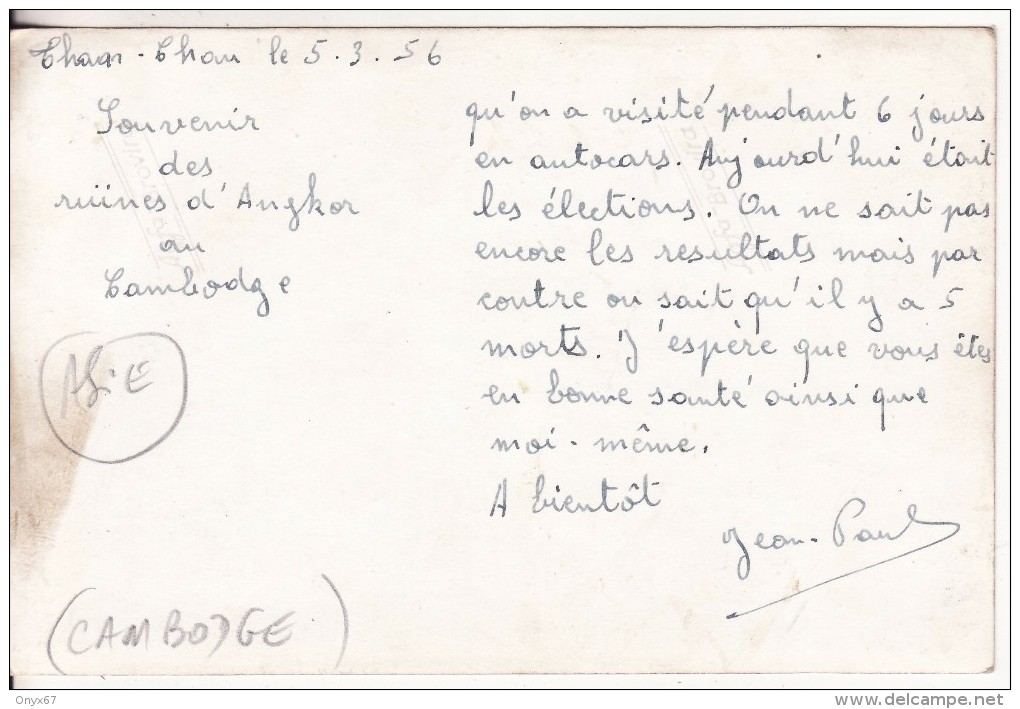 le 5.3.56
Souvenir
des
ruïnes d'Angkor
au
Cambodge
qu'on a visité pendant 6 jours
en autocars. Aujourd'hui était
les élections. On ne sait pas
encore les resultats mais par
contre on sait qu'il y a 5
morts. J'espère que vous êtes
en bonne santé ainsi que
moi-même.
A bientôt
Jean-Paul
ASiE
(CAMBODGE)
Onyx67
www.delcampe.net